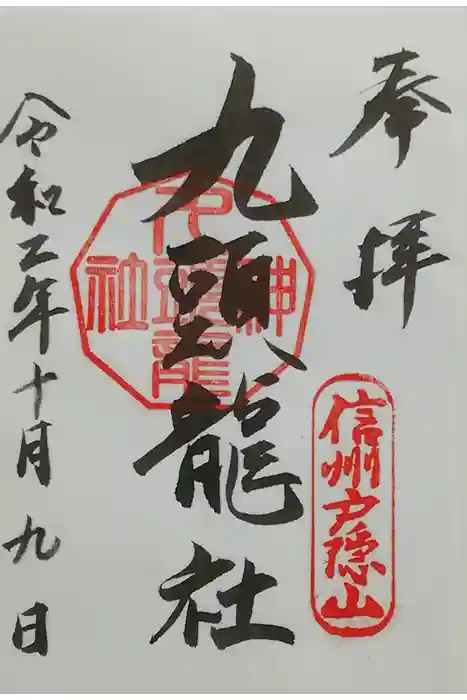 奉拝
信州戸隠山
九頭龍社
九頭龍
神
社
令和二年十月九日